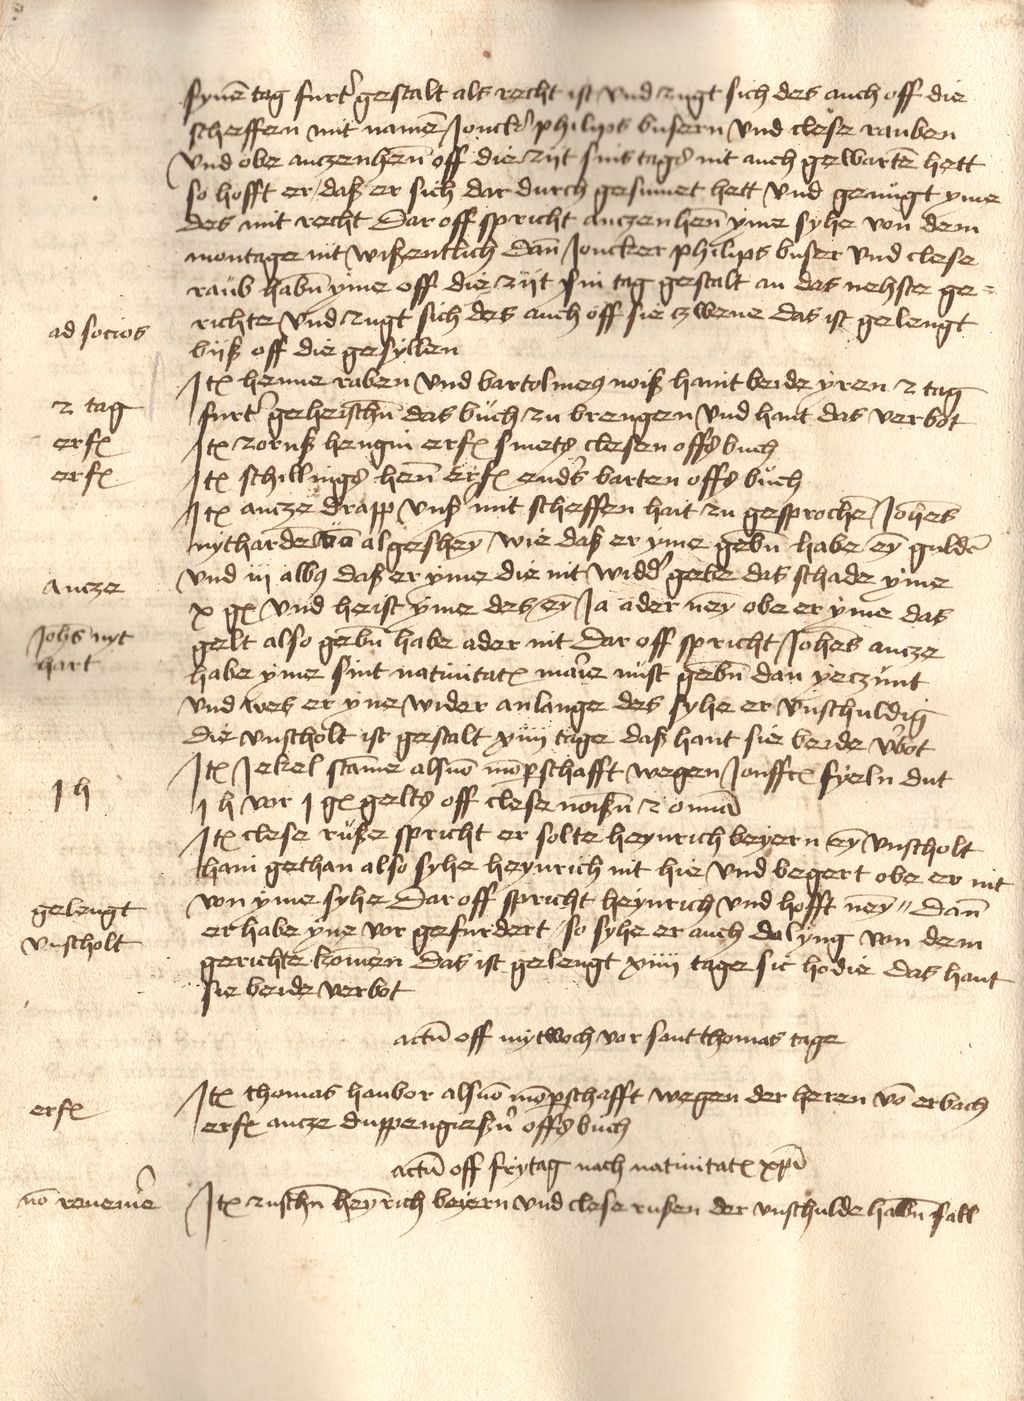 synē tag furt' gestalt als recht ist vnd zugt sich des auch off die
scheffen mit namē Jonck' philips busern vnd clese rauben
vnd obe anczenhen̄ off die zijt sins tags nit auch gewartē hett
so hofft er daß er sich dar durch gesumet hett vnd genugt yme
des mit recht Dar off spricht anczenhen̄ yme syhe von dem
montage nit wißentlich dan̄ Joncker philips buser vnd clese
raub habn̄ yme off die zijt sin tag gestalt an das nehste ge-
richte vnd zugt sich des auch off sie czwene das ist gelengt
ad socios
biß off die gesellen
Itꝫ henne raben vnd bartolmeꝰ noiß hant beide yren 2 tag
2 tag
furt' geheischn̄ das buch zu brengen vnd hant das verbot
erfꝫ
Itꝫ zornß hengin erfꝫ smets clesen offs buch
erfꝫ
Itꝫ schillings hen̄ erfꝫ end's barten offs buch
Itꝫ ancze drapp vnß' mit scheffen hait zu gesprochē Joh̄es
nytharde algeshey wie daß er yme gebn̄ habe eȳ guldē
ancze
vnd iij albꝰ daß er yme die nit widd' gebe das schade yme
x gꝫ vnd heist yme des eȳ Ja ader neȳ obe er yme das
Johs nyt
hart
gelt also gebn̄ habe ader nit Dar off spricht Joh̄es ancze
habe yme sint natiuitatꝫ marie nust gebn̄ dan yeczunt
vnd wes er yne wider anlange des syhe er vnschuldig
die vnscholt ist gestalt xiiij tage daß hant sie beide v'bot
Itꝫ Jekel stam̄e als vō mōp̄schafft wegen Jonffrꝫ fyeln dut
j h
j h vor j gꝫ gelts off clese noißn̄ 2 om̄ia
Itꝫ clese ruße spricht er solte heynrich beyern eȳ vnscholt
hain gethan also syhe heynrich nit hie vnd begert obe er nit
gelengt
von yme syhe Dar off spricht heynrich vnd hofft neȳ Dan̄
vnscholt
er habe yne vor gefurdert so syhe er auch dalyng von dem
gerichte kom̄en Das ist gelengt xiiij tage sic hodie das hant
sie beide verbot
actū off mytwoch vor sant thomas tage
Itꝫ thomas hanbor als vō mōp̄schafft wegen der heren vō erbach
erfꝫ
erfꝫ ancze duppengießn̄ offs buch
actū off frytag nach natiuitatꝫ xp̄i
nō reuenie
Itꝫ zuschn̄ heynrich beyern vnd clese rußen der vnschulde habn̄ sall